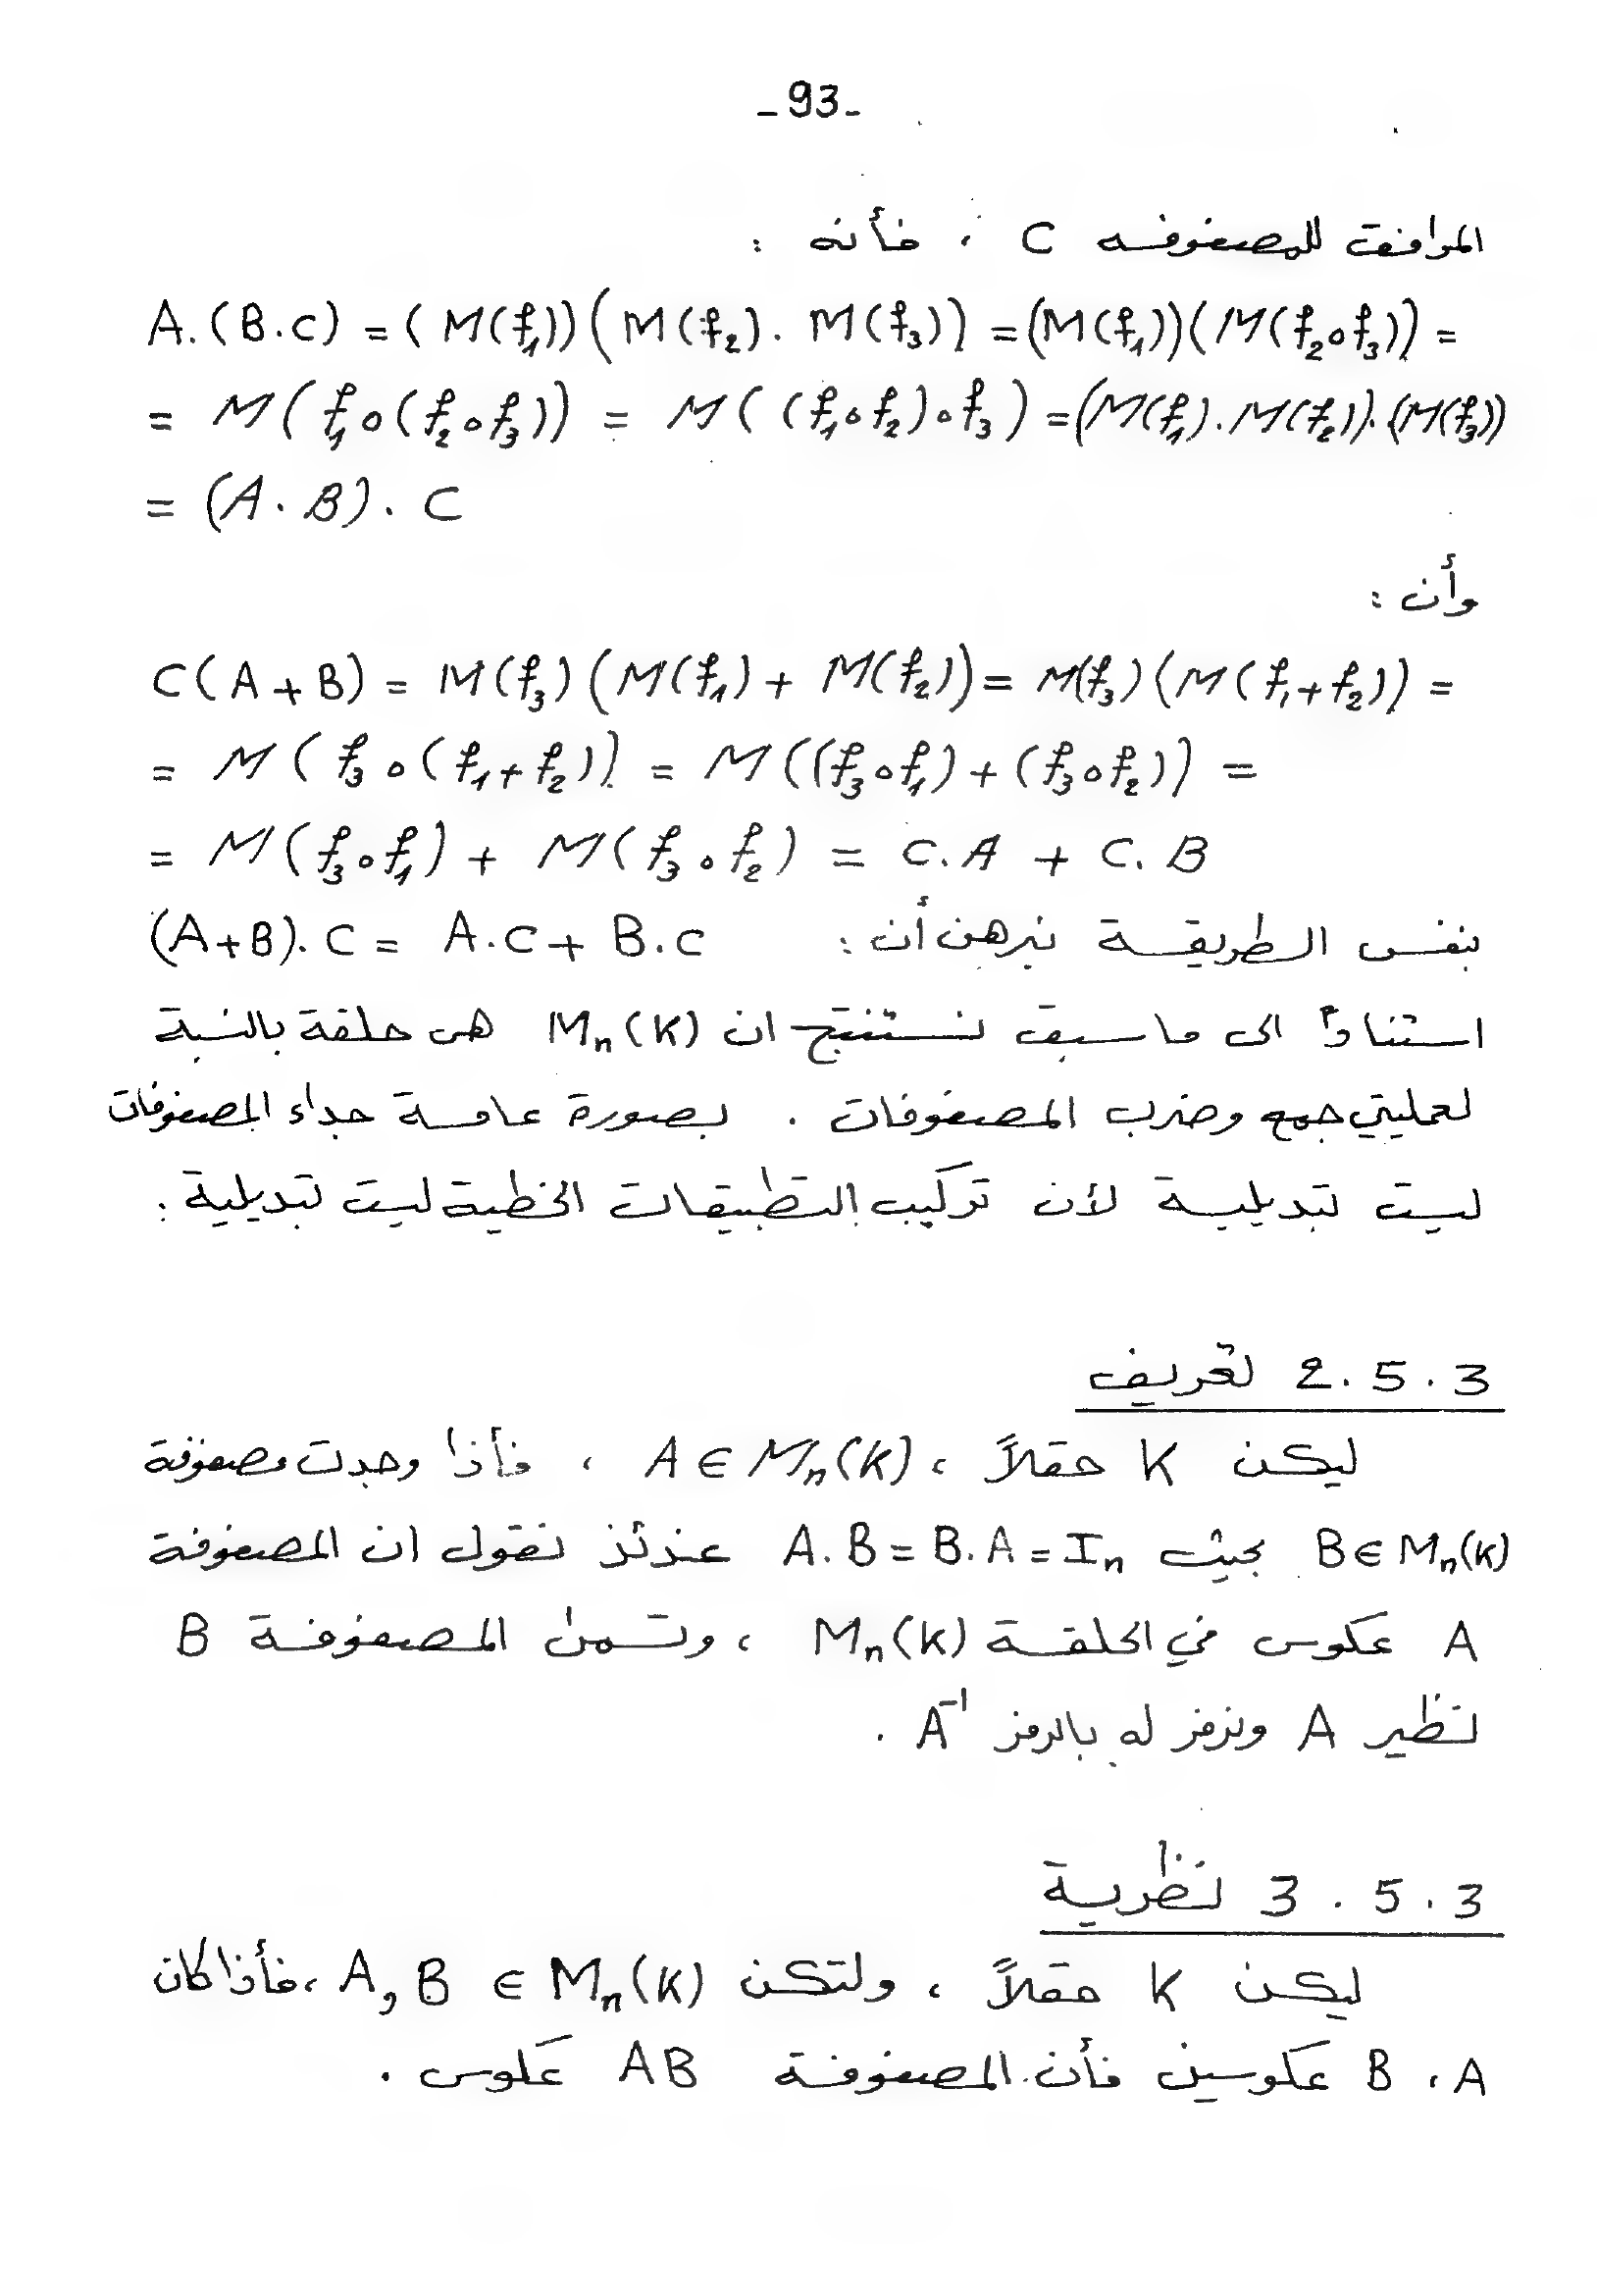 -93-
الموافق للمصفوفه C ، فأنه :
A.(B.C) = (M(f₁))(M(f₂). M(f₃)) = (M(f₁))(M(f₂∘f₃)) =
= M(f₁∘(f₂∘f₃)) = M((f₁∘f₂)∘f₃) = (M(f₁).M(f₂)).(M(f₃))
= (A.B).C
وأن :
C(A+B) = M(f₃)(M(f₁)+M(f₂)) = M(f₃)(M(f₁+f₂)) =
= M(f₃∘(f₁+f₂)) = M((f₃∘f₁)+(f₃∘f₂)) =
= M(f₃∘f₁) + M(f₃∘f₂) = C.A + C.B
بنفس الطريقة نبرهن أن : (A+B).C = A.C + B.C
استناداً الى ما سبق نستنتج ان Mₙ(K) هى حلقة بالنسبة
لعمليتي جمع وضرب المصفوفات . بصورة عامة جداء المصفوفات
ليست تبديلية لأن تركيب التطبيقات الخطية ليست تبديلية .
2.5.3 تعريف
ليكن K حقلاً ، A ∈ Mₙ(K) ، فأذا وجدت مصفوفة
B ∈ Mₙ(K) بحيث A.B = B.A = Iₙ عندئذ نقول ان المصفوفة
A عكوس في الحلقة Mₙ(K) ، وتسمى المصفوفة B
نظير A ونرمز له بالرمز A⁻¹ .
3.5.3 نظرية
ليكن K حقلاً ، ولتكن A, B ∈ Mₙ(K) ، فأذا كان
A ، B عكوسين فأن المصفوفة AB عكوس .